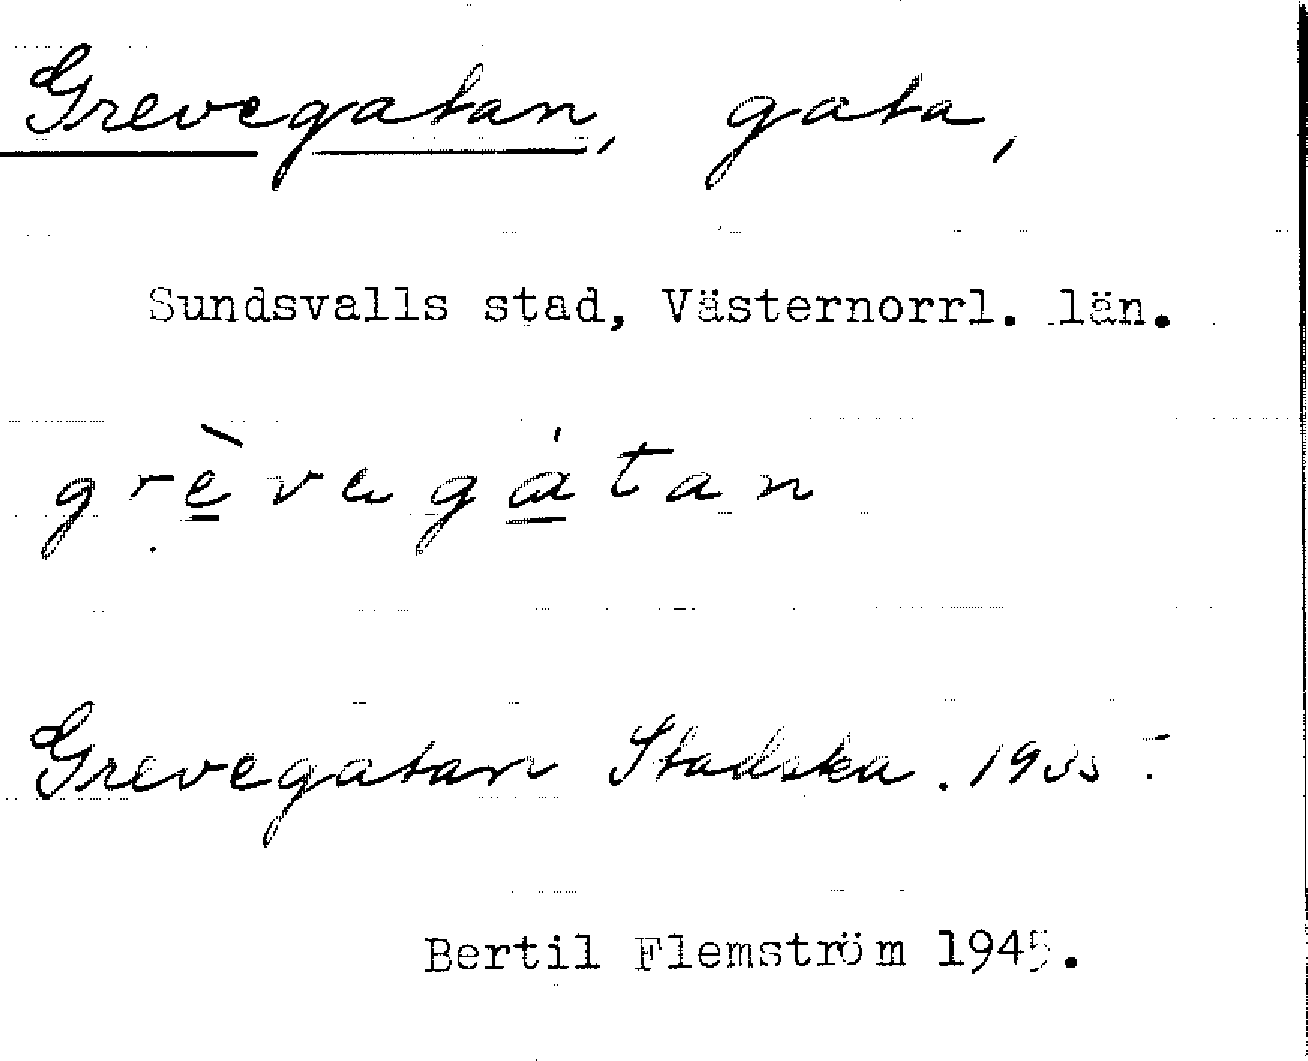 Grevegatan, gata,
Sundsvalls stad, Västernorrl. län.
grèvegátan
Grevegatan Stadska. 1935.
Bertil Flemström 1945.